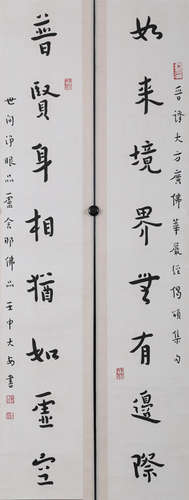 如来境界無有邊際
晋譯大方廣佛華嚴经偈頌集句
普賢身相猶如虛空
世间淨眼品盧舍那佛品 壬申大安書